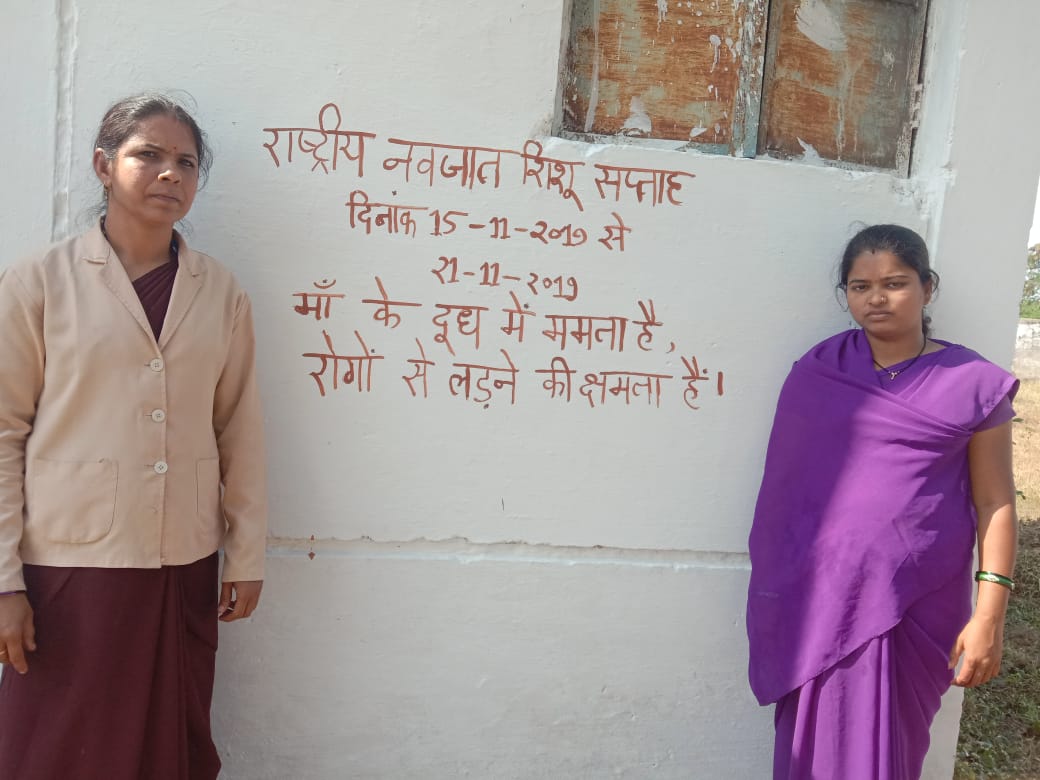 राष्ट्रीय नवजात शिशू सप्ताह
दिनांक 15-11-२०१७ से
२1-11-२०१७
माँ के दूध में ममता है,
रोगों से लेड़ने की क्षमता हैं।